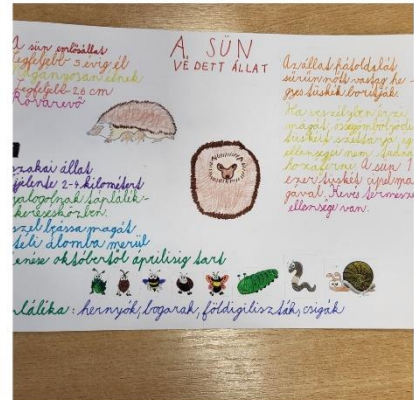 A SÜN
VÉDETT ÁLLAT
A sün emlősállat
legfeljebb 3 évig él
magányosan élnek
Legfeljebb 26 cm
Rovarevő
éjszakai állat
2-4 kilométert
gyalogolnak táplálék-
keresés közben.
magát
téli álomba merül
októbertől áprilisig tart
Az állat hátoldalát
sűrűn nőtt vastag he-
gyes tüskék borítják.
Ha veszélyben érzi
magát,
tüskéit
ellenségei nem tudnak
A sün
ezer tüskét cipel ma-
gával. Kevés természe
ellensége van.
: hernyók, bogarak, földigiliszták, csigák